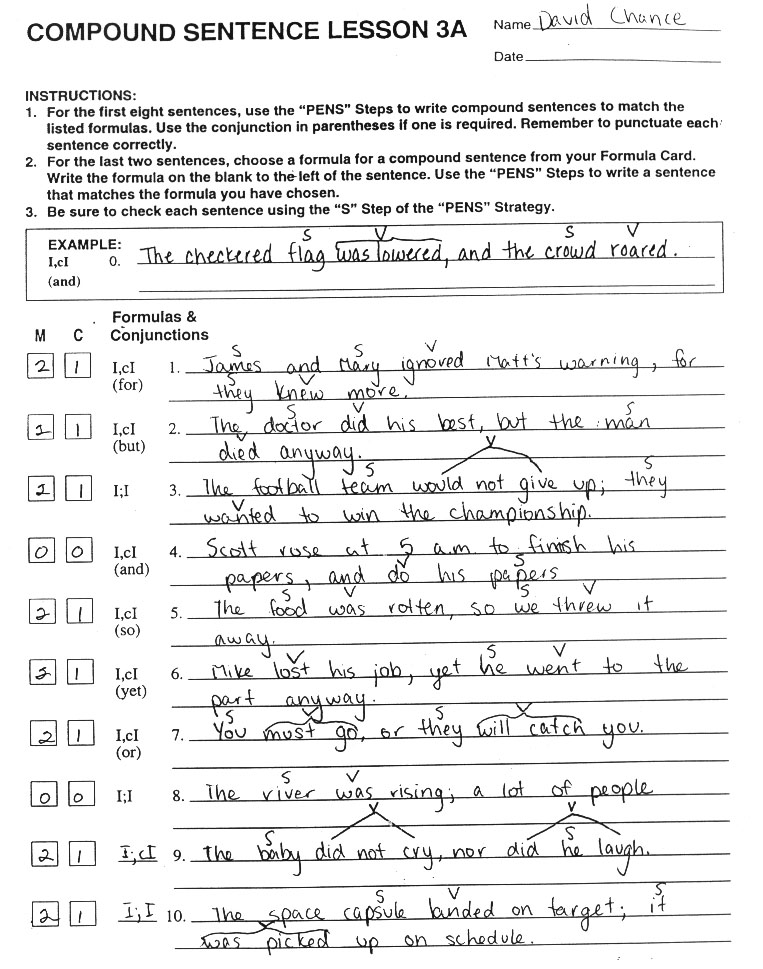 COMPOUND SENTENCE LESSON 3A
Name David Chance
Date
INSTRUCTIONS:
1. For the first eight sentences, use the "PENS" Steps to write compound sentences to match the
listed formulas. Use the conjunction in parentheses if one is required. Remember to punctuate each
sentence correctly.
2. For the last two sentences, choose a formula for a compound sentence from your Formula Card.
Write the formula on the blank to the left of the sentence. Use the "PENS" Steps to write a sentence
that matches the formula you have chosen.
3. Be sure to check each sentence using the "S" Step of the "PENS" Strategy.
S V S V
EXAMPLE:
I,cI 0. The checkered flag was lowered, and the crowd roared.
(and)
Formulas &
M C Conjunctions
S S V
2 1 I,cI 1. James and Mary ignored Matt's warning, for
(for) S V
they knew more.
S V S
1 I,cI 2. The doctor did his best, but the man
(but) V
died anyway.
S V S
1 I;I 3. The football team would not give up; they
V
wanted to win the championship.
0 0 I,cI 4. Scott rose at 5 a.m to finish his
(and) V S
papers, and do his papers
S V S V
2 1 I,cI 5. The food was rotten, so we threw it
(so)
away.
V S V
1 I,cI 6. Mike lost his job, yet he went to the
(yet)
part anyway.
S V S V
2 1 I,cI 7. You must go, or they will catch you.
(or)
S V
0 0 I;I 8. The river was rising; a lot of people
S V S V
2 1 I;cI 9. The baby did not cry, nor did he laugh.
S V S
2 1 I;I 10. The space capsule landed on target; it
V
was picked up on schedule.